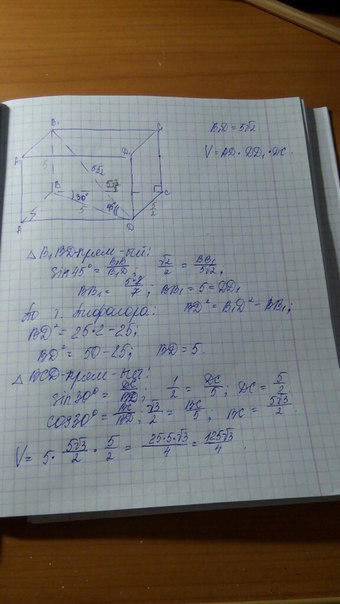 B₁
A₁
D₁
5√2
5
B
30°
5
45°
C
A
D
BD = 5√2
V = AD · DD₁ · DC
△ B₁BD-прям-ый:
sin 45° = B₁B/B₁D; √2/2 = BB₁/5√2;
BB₁ = 5; BB₁ = 5 = DD₁
По т. Пифагора: BD² = B₁D² - BB₁²;
BD² = 25·2 - 25;
BD² = 50 - 25; BD = 5.
△ BCD-прям-ый:
sin 30° = DC/BD; 1/2 = DC/5; DC = 5/2
cos 30° = BC/BD; √3/2 = BC/5; BC = 5√3/2
V = 5 · 5√3/2 · 5/2 = 25·5·√3/4 = 125√3/4